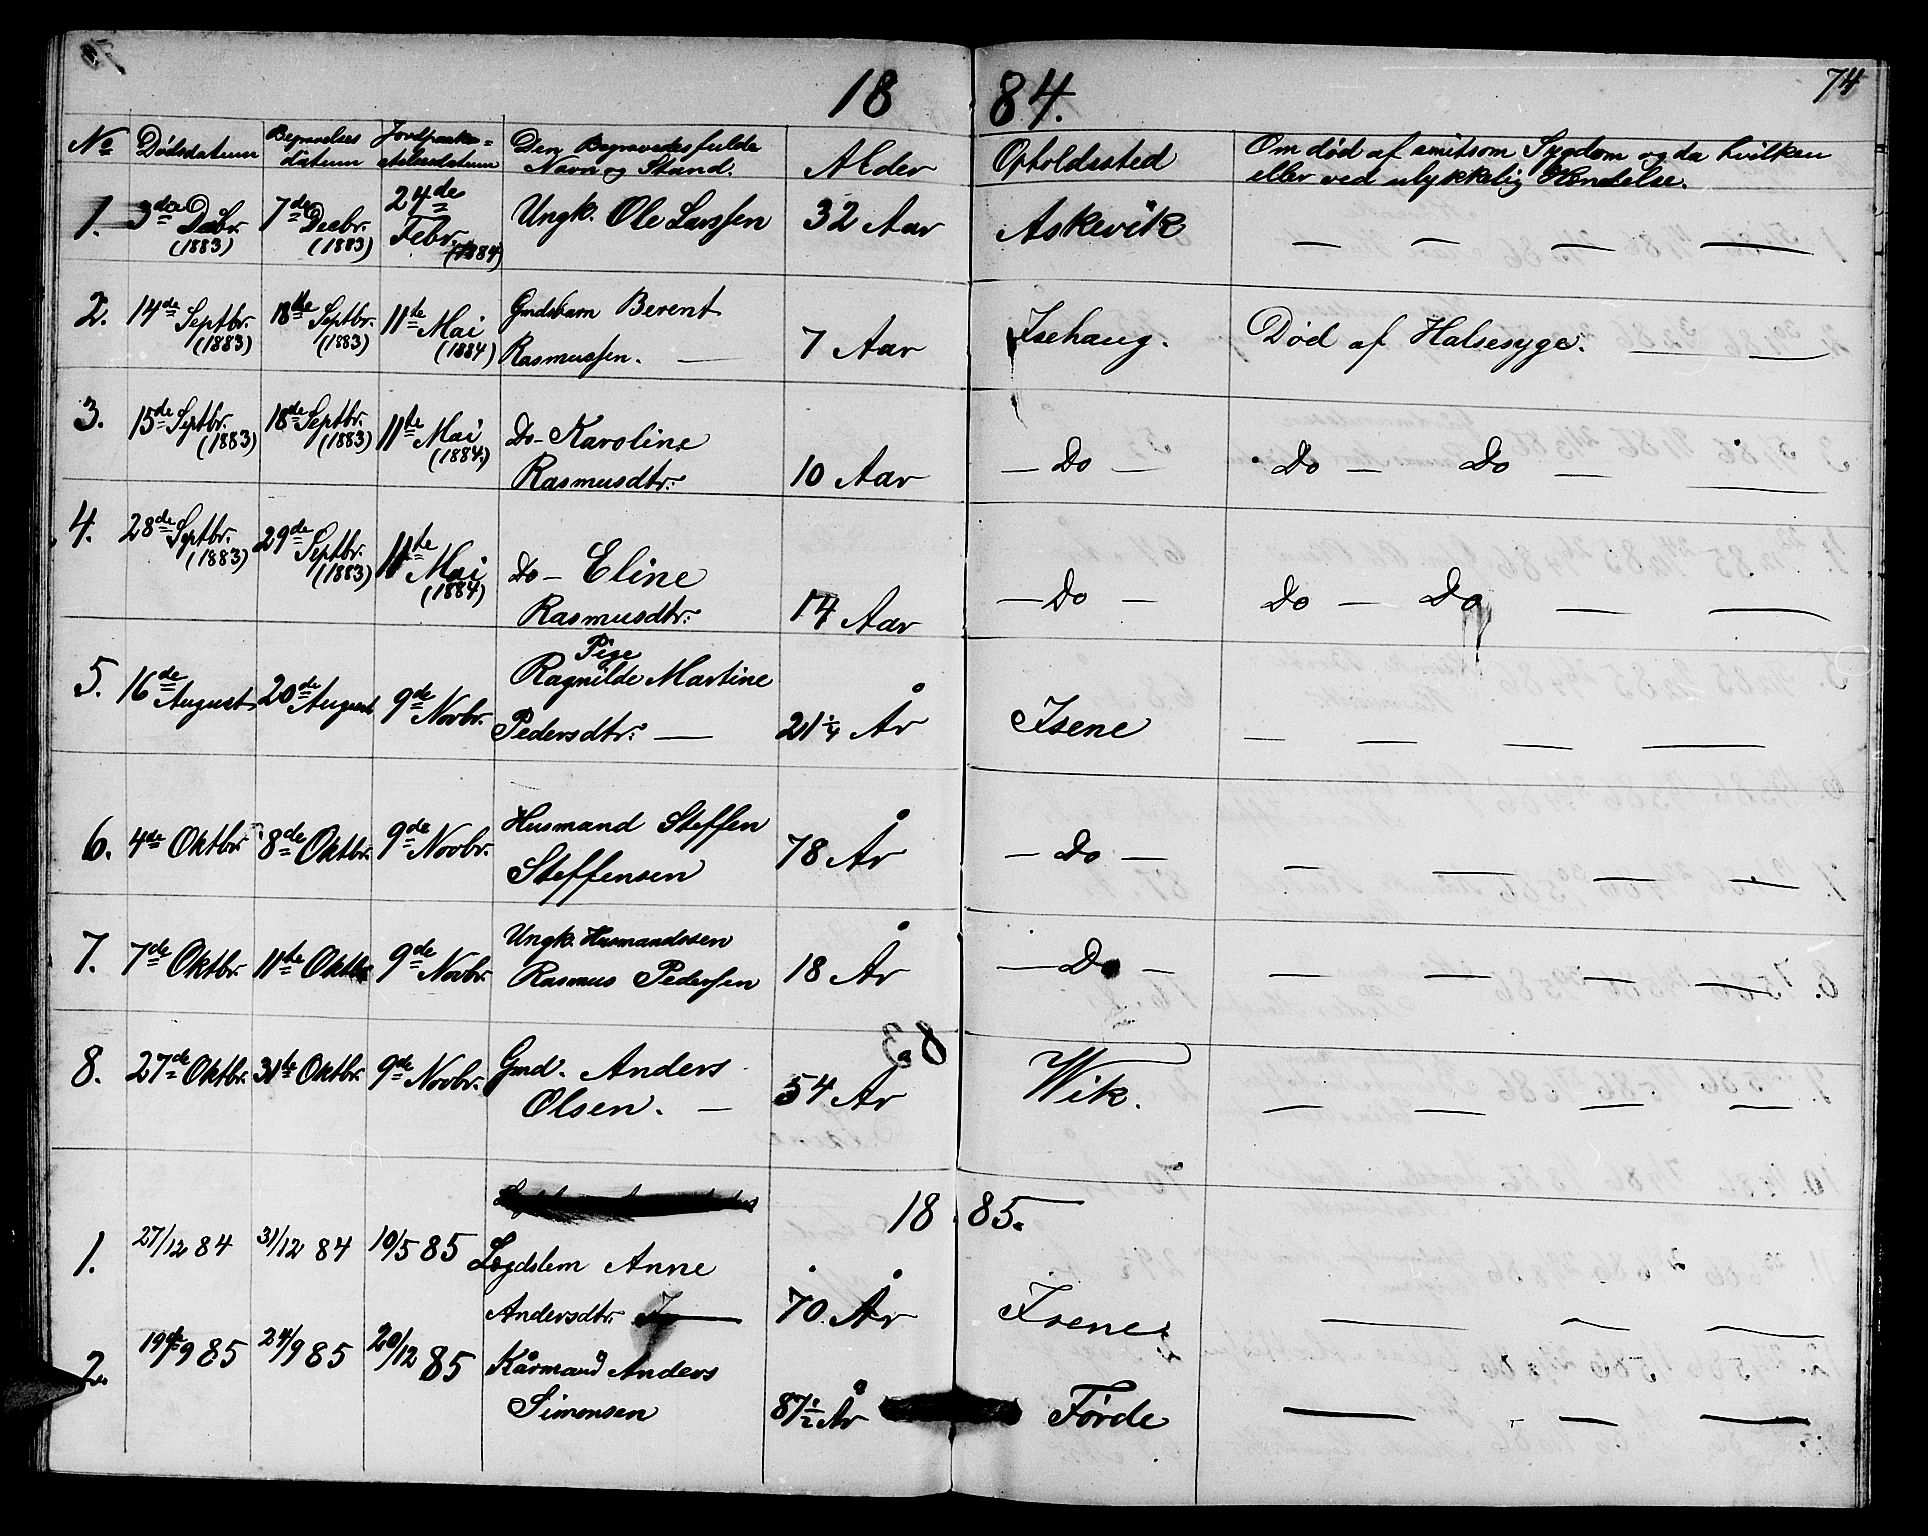 18 84. 74
No Dødsdatum Begravelses datum Jordpaaka= stelsesdatum Den Begravedes fulde Navn og Stand. Alder Opholdssted Om død af smitsom Sygdom og da hvilken eller ved ulykkelig Hendelse.
1. 3de Decbr. (1883) 7de Decbr. (1883) 24de Febr. (1884) Ungk. Ole Larssen 32 Aar Askevik — — — —
2. 14de Septbr. (1883) 18de Septbr. (1883) 11te Mai (1884) Gmdsbarn Berent Rasmussen. — 7 Aar Isehaug. Død af Halsesyge. — —
3. 15de Septbr. (1883) 18de Septbr. (1883) 11te Mai (1884.) Do - Karoline Rasmusdtr: 10 Aar — Do — Do — Do — —
4. 28de Septbr. (1883) 29de Septbr. (1883) 11te Mai (1884) Do - Eline Rasmusdtr: 14 Aar — Do — Do — Do — —
5. 16de August 20de August 9de Novbr. Pige Ragnilde Martine Pedersdtr: — 21 1/4 År Isene — — — —
6. 4de Oktbr. 8de Oktbr. 9de Novbr. Husmand Steffen Steffensen 78 År — Do — — — — —
7. 7de Oktbr. 11te Oktbr. 9de Novbr. Ungk. Husmandssøn Rasmus Pedersen 18 År — Do — — — — —
8. 27de Oktbr. 31te Oktbr. 9de Novbr. Gmd. Anders Olsen. — 54 År Wik. — — — —
18 85.
1. 27/12 84 31/12 84 10/5 85 Lægdslem Anne Andersdtr. 70 År Isene — — —
2. 19de/9 85 24/9 85 20/12 85 Kårmand Anders Simonsen 87 1/2 År Førde — — —